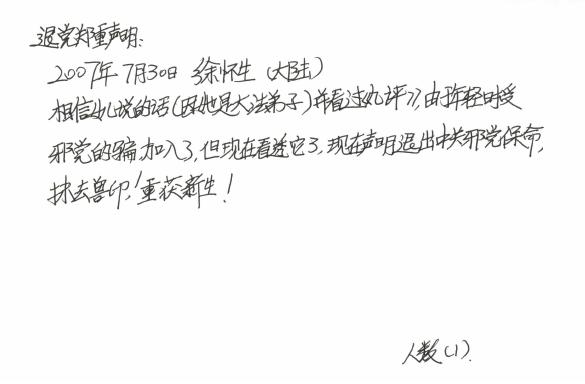 退党郑重声明：
2007年7月30日 徐怀生（大陆）
相信女儿说的话（因她是大法弟子）并看过《九评》，由于年轻时受
邪党的骗，加入了，但现在看透它了，现在声明退出中共邪党保命，
抹去兽印！重获新生！
人数（1）．